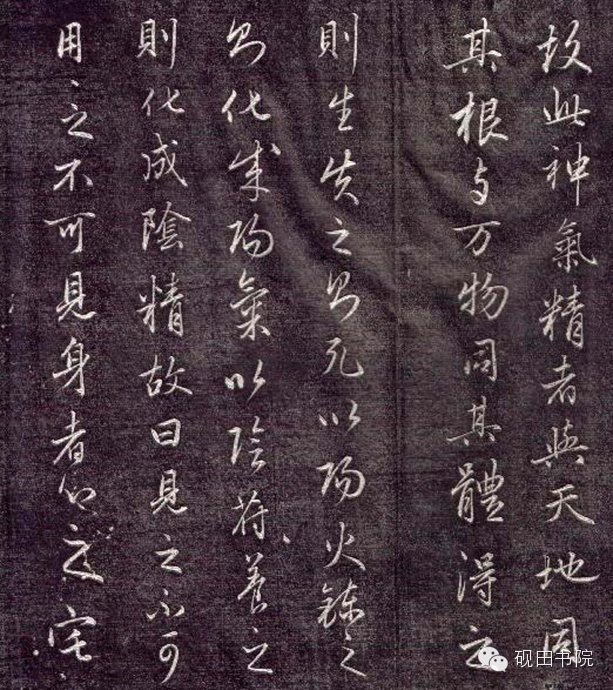 故此神氣精者與天地同
其根与万物同其體得之
則生失之即死以陽火鍊之
即化成陽氣以陰苻養之
則化成陰精故曰見之不可
用之不可見身者心之宅
砚田书院